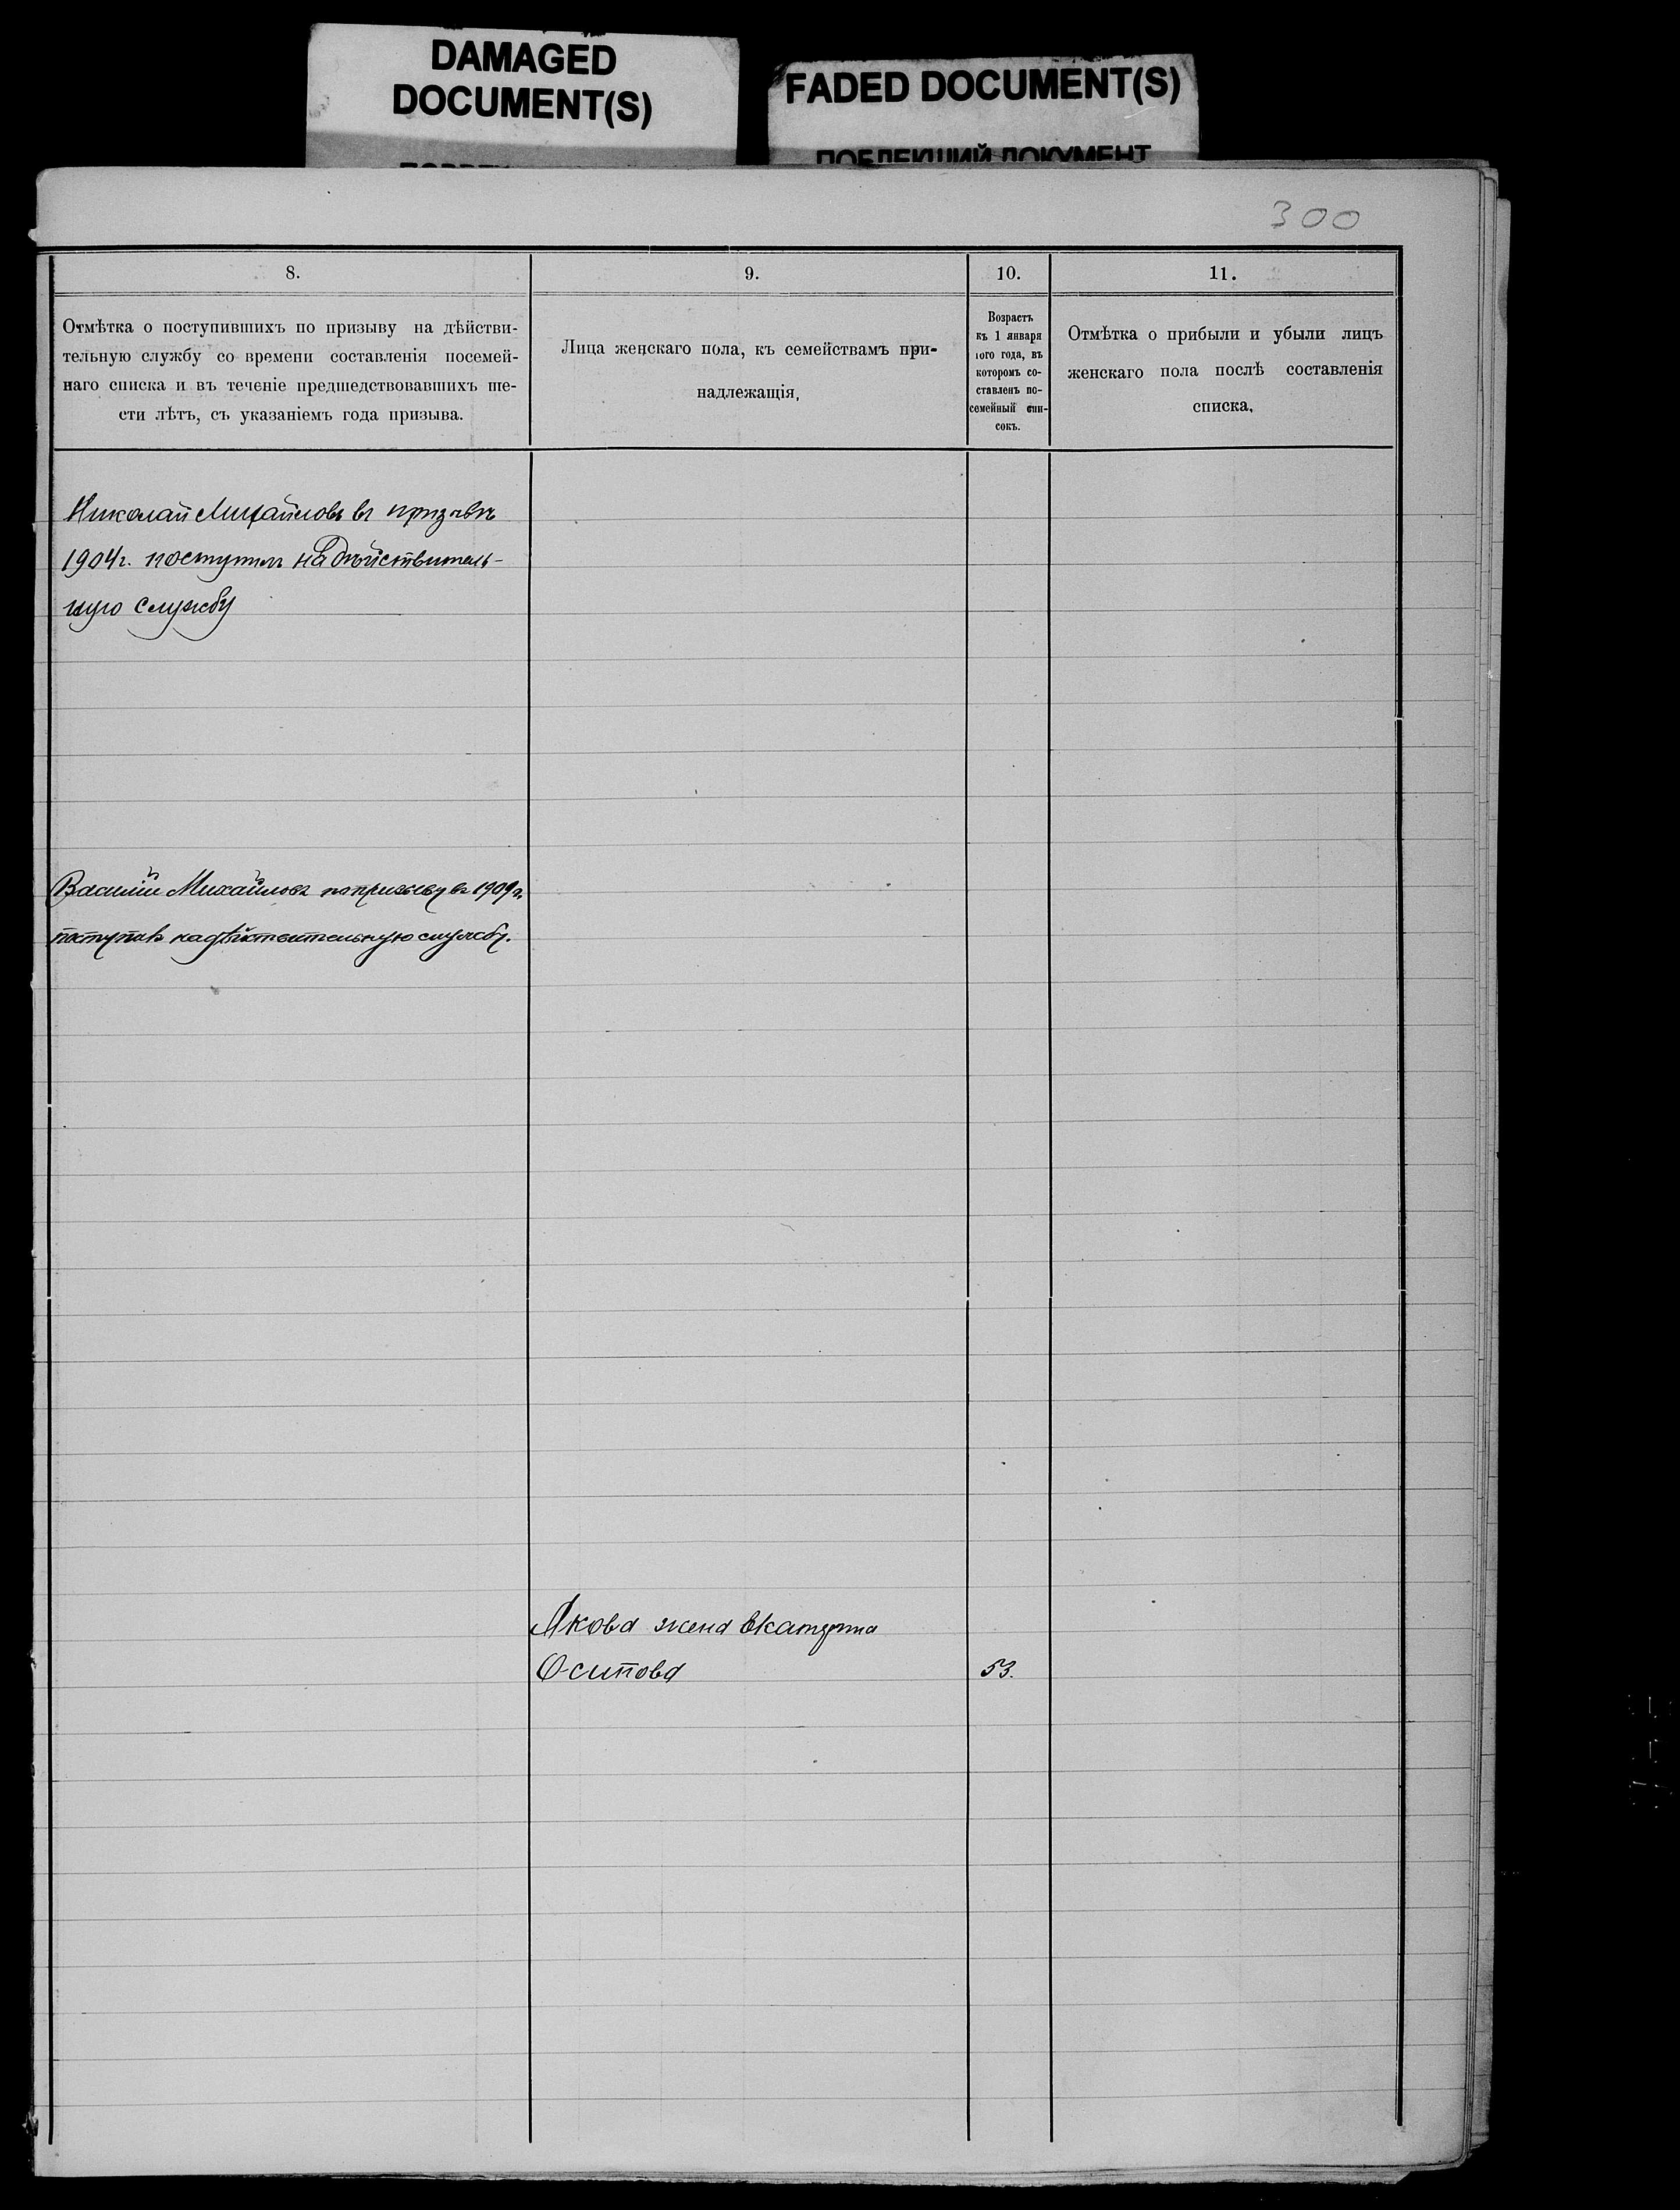 DAMAGED
DOCUMENT(S)
FADED DOCUMENT(S)
ПОБЛЕКШИЙ ДОКУМЕНТ
300
8.
9.
10.
11.
Отмѣтка о поступившихъ по призыву на дѣйстви-
тельную службу со времени составленія посемей-
наго списка и въ теченіе предшедствовавшихъ ше-
сти лѣтъ, съ указаніемъ года призыва.
Лица женскаго пола, къ семействамъ при-
надлежащія,
Возрастъ
къ 1 января
того года, въ
которомъ со-
ставленъ по-
семейный спи-
сокъ.
Отмѣтка о прибыли и убыли лицъ
женскаго пола послѣ составленія
списка.
Николай Михайловъ въ призывъ
1904 г. поступилъ на дѣйствитель-
ную службу
Василій Михайловъ по призыву въ 1909 г.
поступилъ на дѣйствительную службу.
Якова жена Екатерина
Осипова
53.